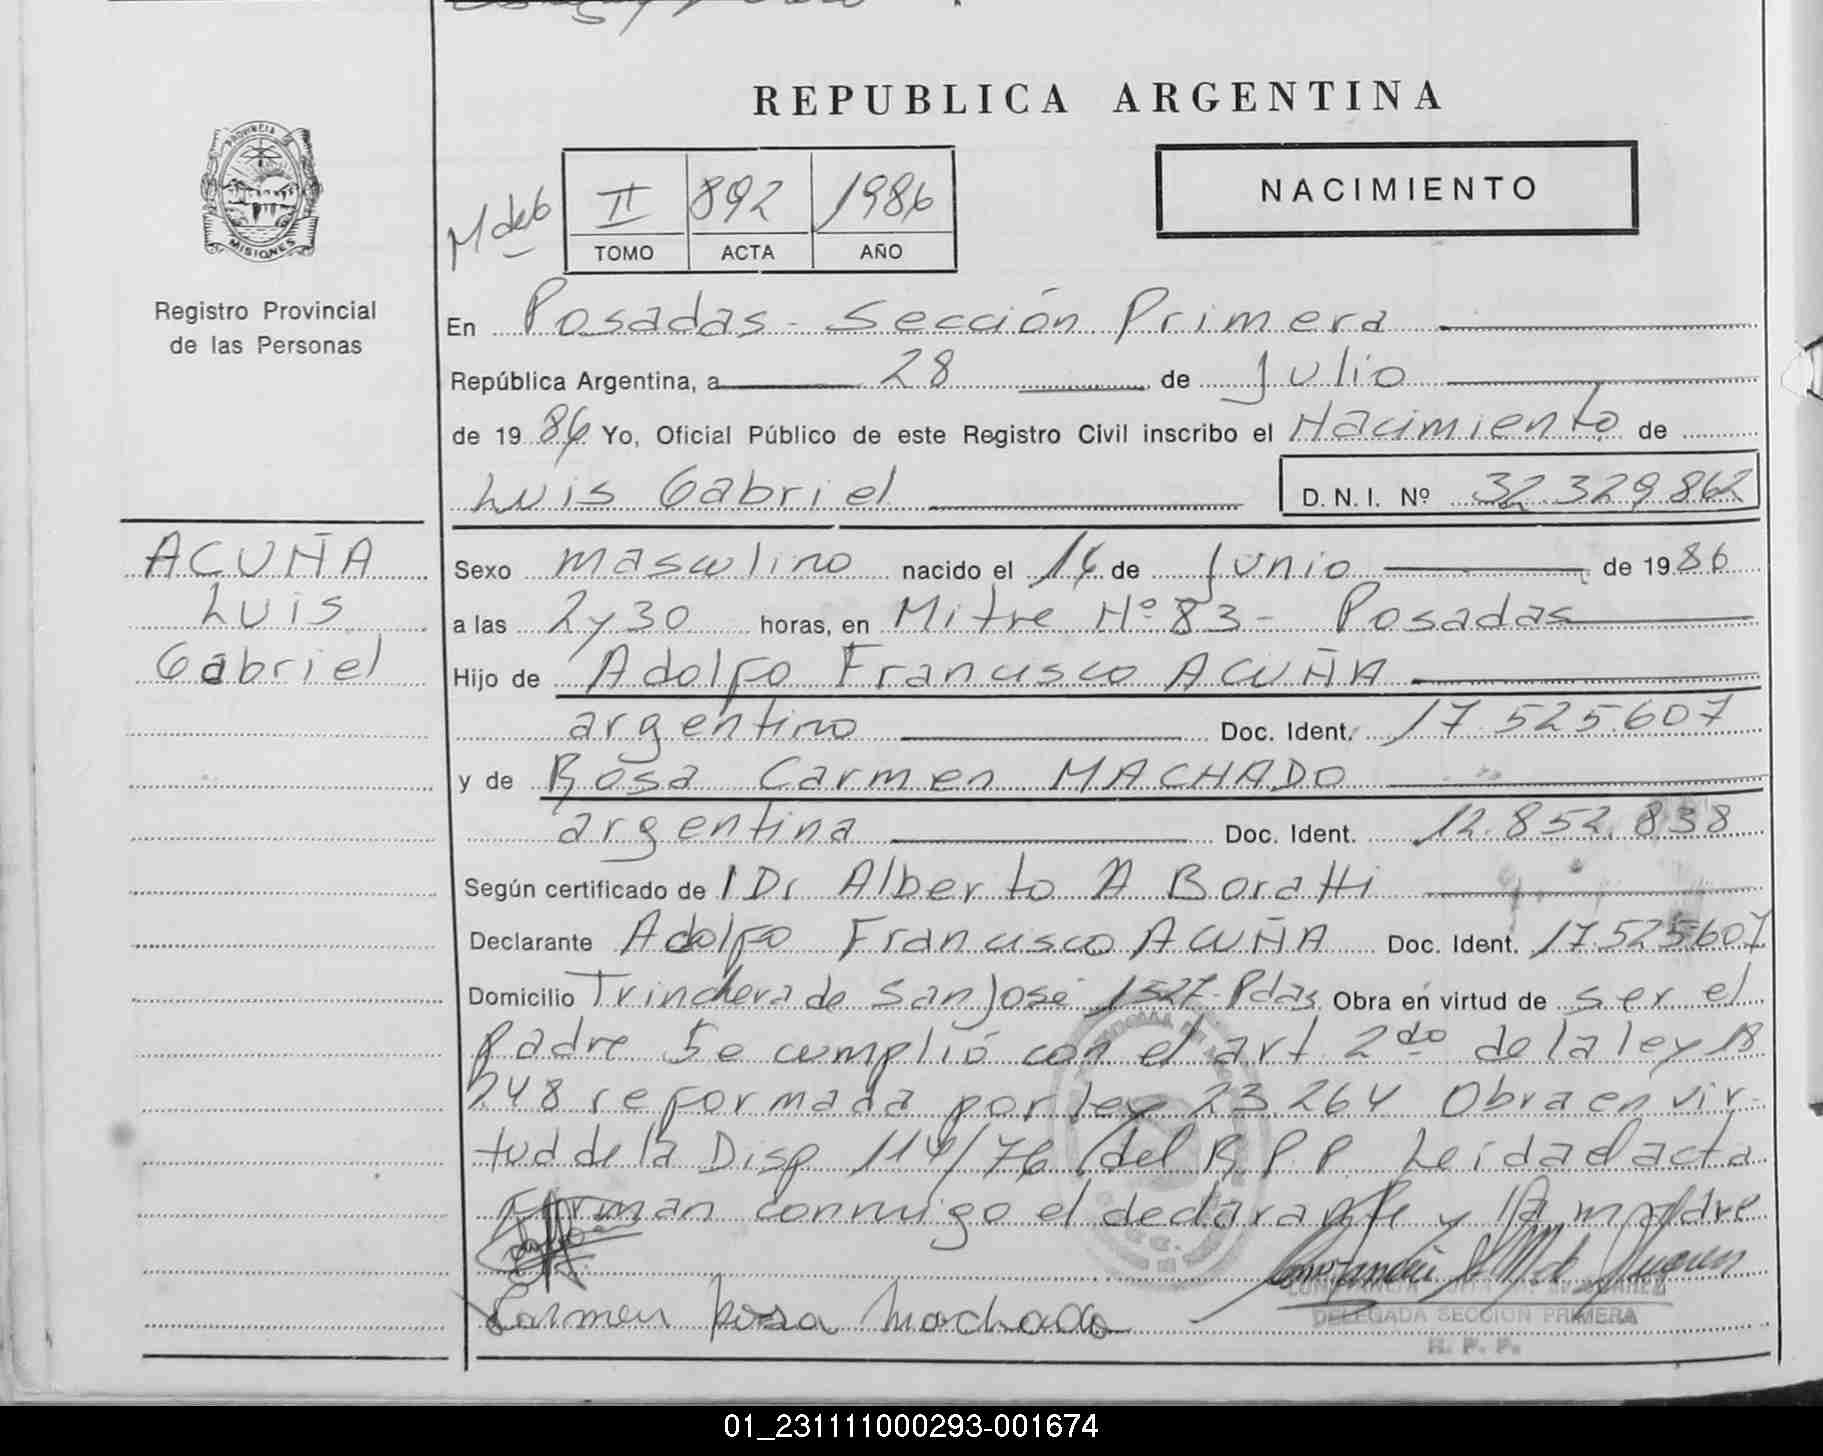 REPUBLICA ARGENTINA
PROVINCIA
MISIONES
Registro Provincial
de las Personas
II 892 1986
TOMO ACTA AÑO
NACIMIENTO
En Posadas - Sección Primera
República Argentina, a 28 de Julio
de 1986 Yo, Oficial Público de este Registro Civil inscribo el Nacimiento de
Luis Gabriel D.N.I. Nº 32.329.862
ACUÑA
Luis
Gabriel
Sexo masculino nacido el 16 de Junio de 1986
a las 2 y 30 horas, en Mitre Nº 83 - Posadas
Hijo de Adolfo Francisco ACUÑA
argentino Doc. Ident. 17.525.607
y de Rosa Carmen MACHADO
argentina Doc. Ident. 12.852.838
Según certificado de l Dr Alberto A Boratti
Declarante Adolfo Francisco ACUÑA Doc. Ident. 17.525607
Domicilio Trinchera de San José 1527 - Pdas Obra en virtud de ser el
padre Se cumplió con el art 2do de la ley 18
248 reformada por ley 23.264 Obra en vir-
tud de la Disp 114/76 del R.P.P. Leída el acta
firman conmigo el declarante y la madre
Carmen Rosa Machado
DELEGADA SECCION PRIMERA
R. P. P.
01_231111000293-001674